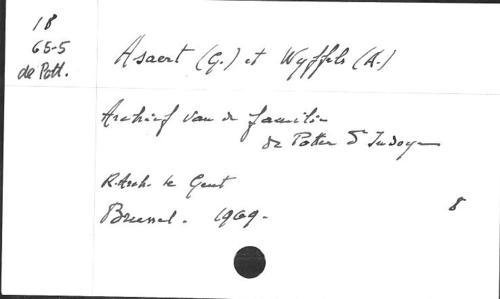 18
65-5
de Pott.
Asaert (G.) et Wyffels (A.)
Archief van de familie
de Potter d'Indoye
R. Arch. te Gent
Brussel. 1969.
8